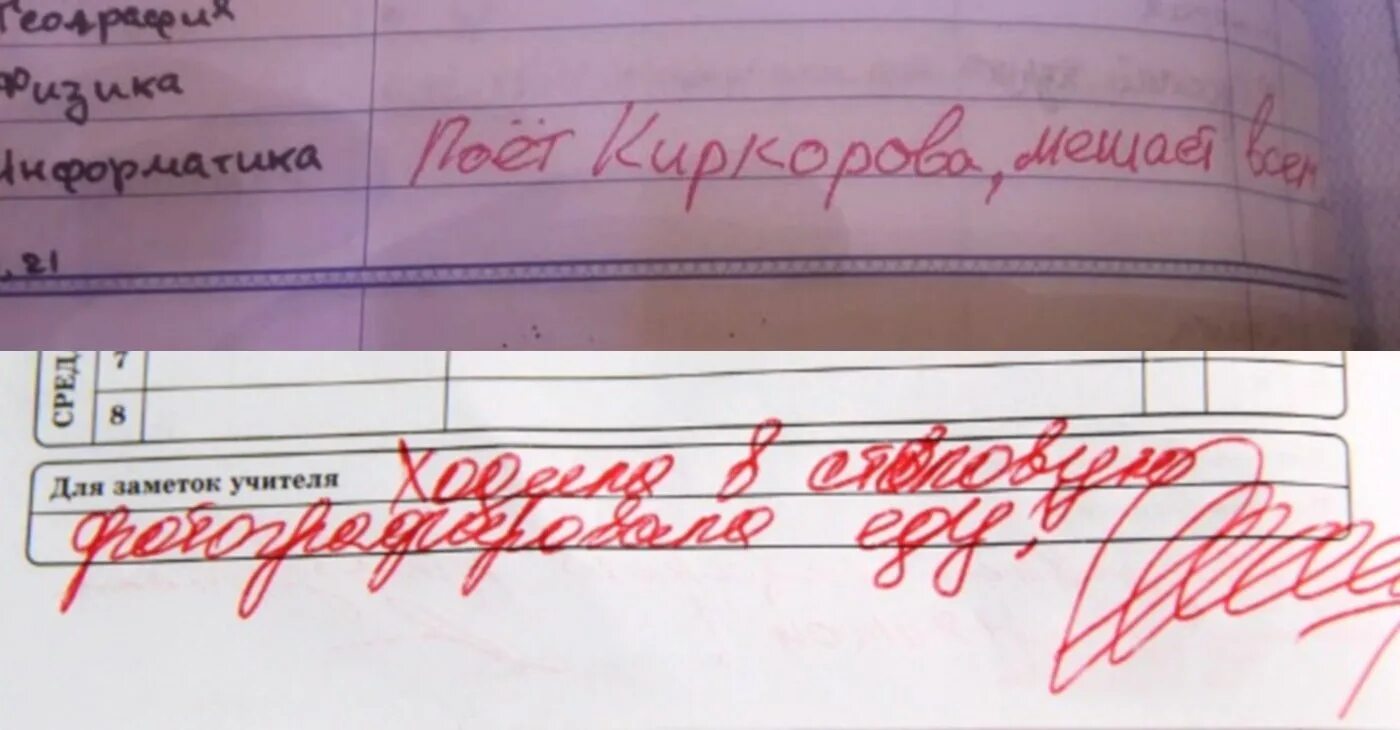 География
Физика
Информатика Поёт Киркорова, мешает всем
, 21
СРЕД
7
8
Для заметок учителя Ходила в столовую
фотографировала еду!